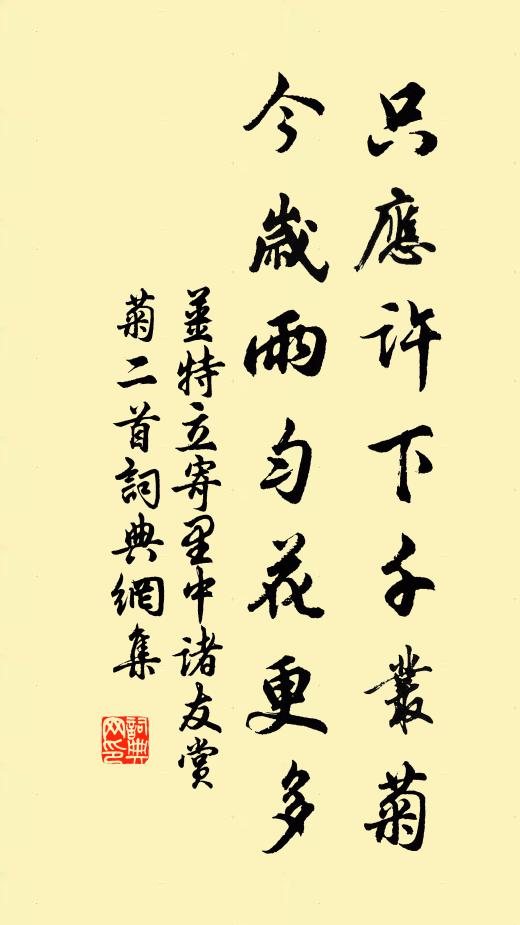 只應許下千叢菊
今歲雨勻花更多
姜特立寄里中諸友賞
菊二首詞典網集
詞典
网印